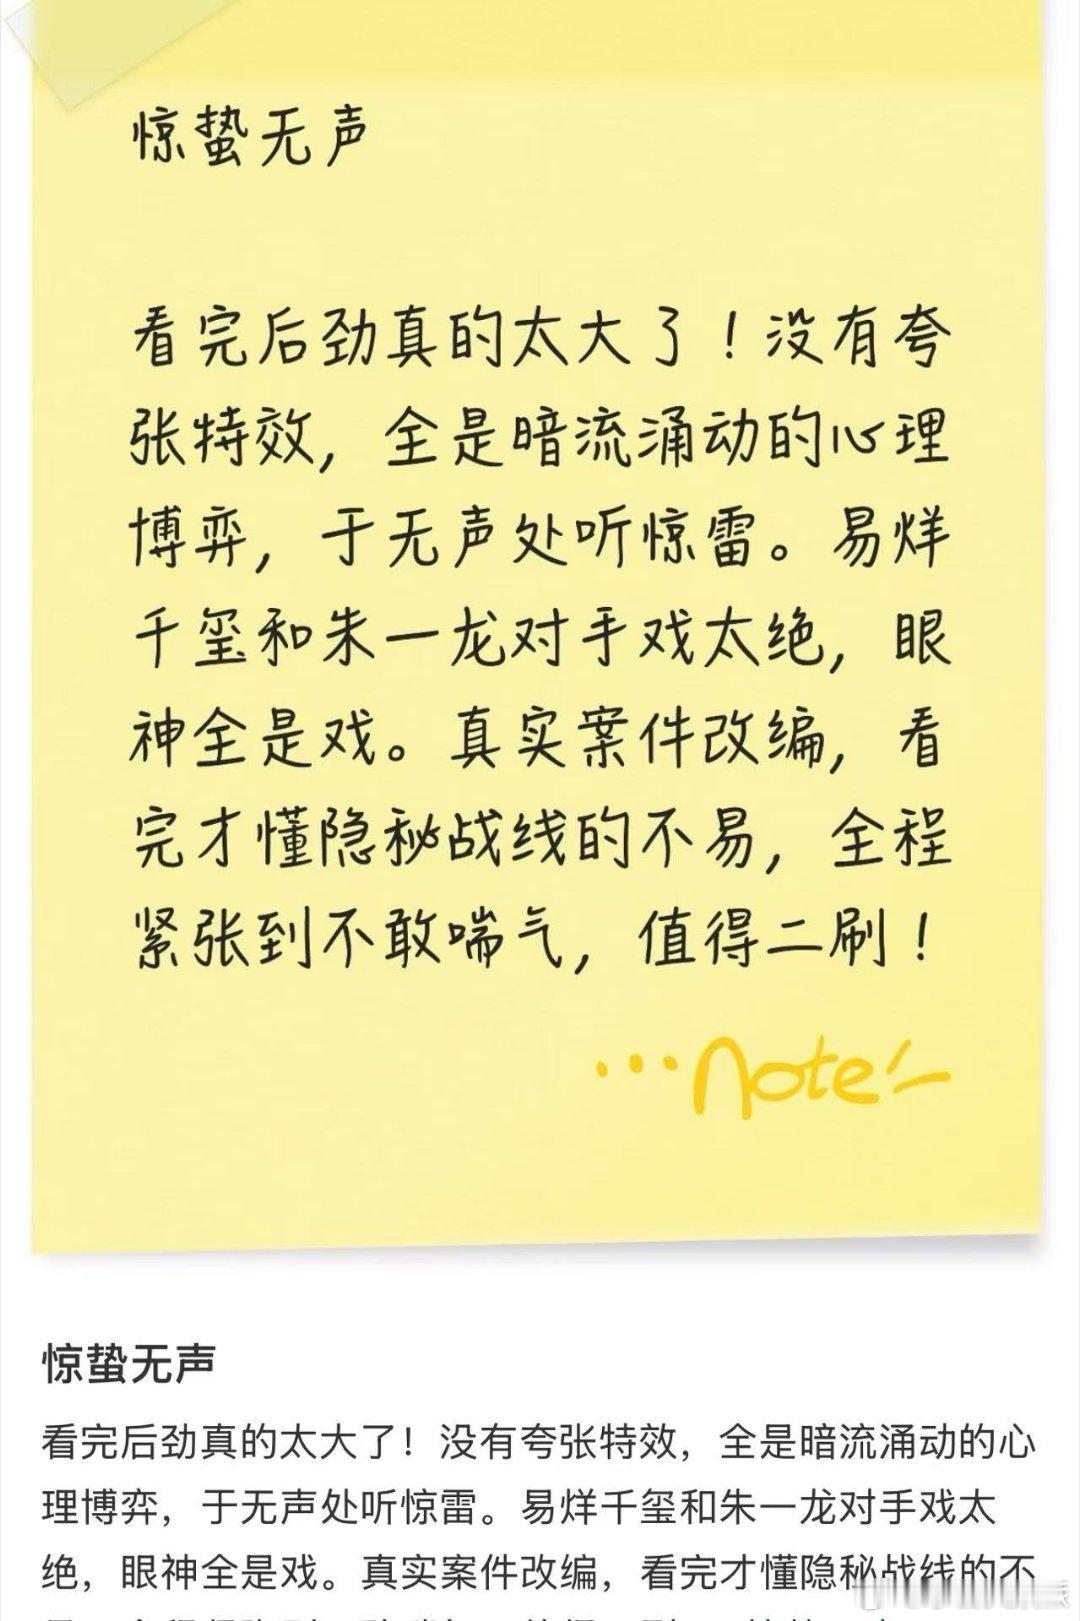 惊蛰无声
看完后劲真的太大了！没有夸
张特效，全是暗流涌动的心理
博弈，于无声处听惊雷。易烊
千玺和朱一龙对手戏太绝，眼
神全是戏。真实案件改编，看
完才懂隐秘战线的不易，全程
紧张到不敢喘气，值得二刷！
...note
惊蛰无声
看完后劲真的太大了！没有夸张特效，全是暗流涌动的心
理博弈，于无声处听惊雷。易烊千玺和朱一龙对手戏太
绝，眼神全是戏。真实案件改编，看完才懂隐秘战线的不